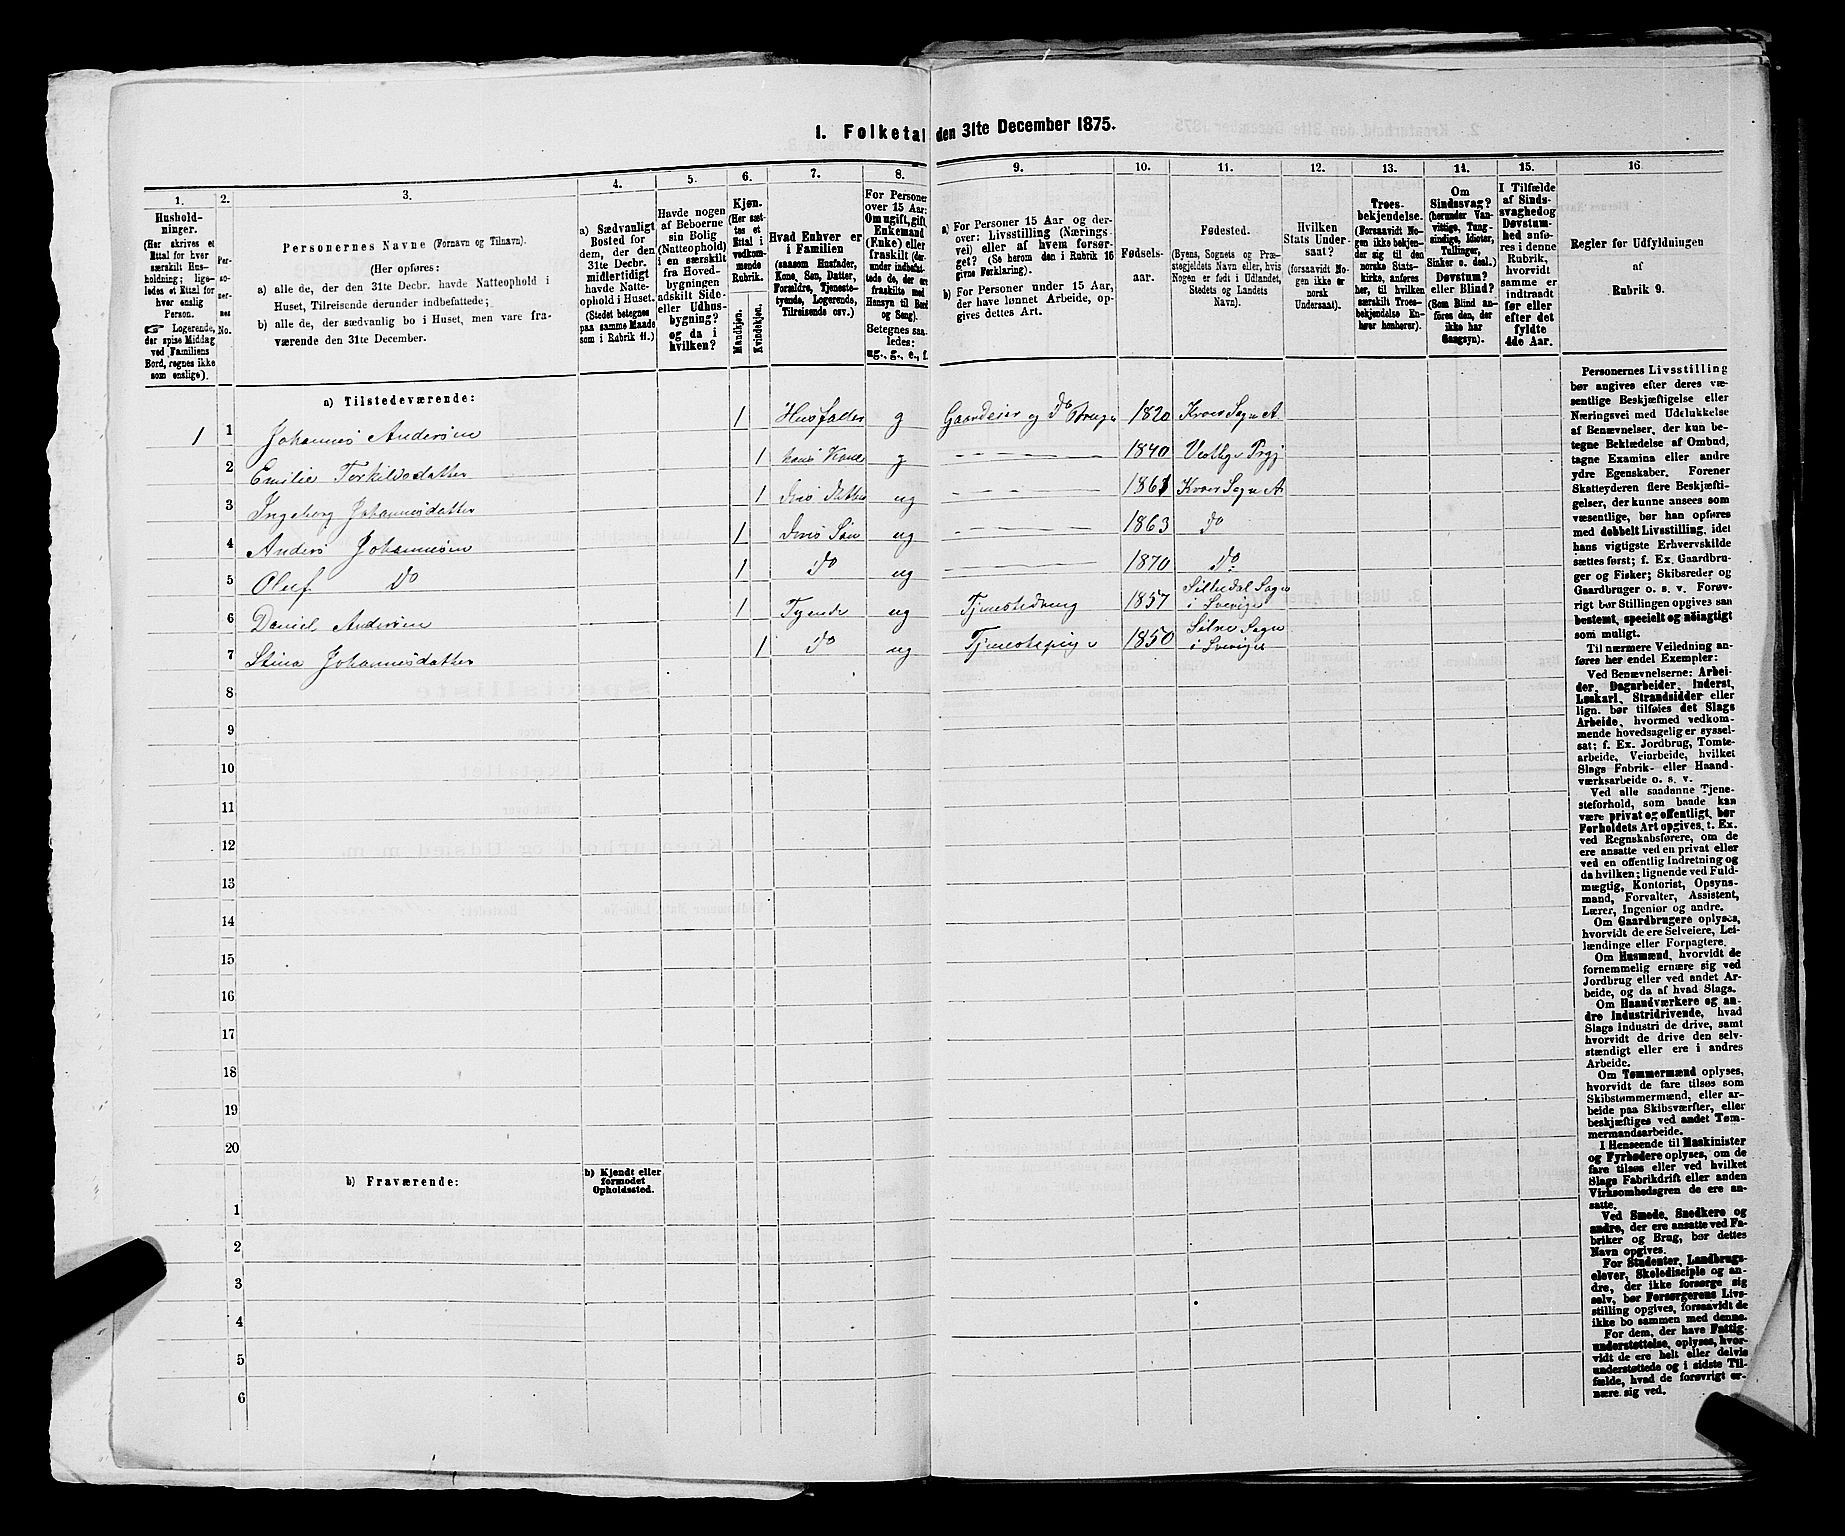 1. Folketal den 31te December 1875.
1.
2.
3.
4.
5.
6.
7.
8.
9.
10.
11.
12.
13.
14.
15.
16
Hushold-
ninger.
(Her skrives et
Ettal for hver
særskilt Hus-
holdning; lige-
ledes et Ettal for
hver enslig
Person.
☞ Logerende,
der spise Middag
ved Familiens
Bord, regnes ikke
som enslige).
Per-
so-
ner-
nes
No.
Personernes Navne (Fornavn og Tilnavn).
(Her opføres:
a) alle de, der den 31te Decbr. havde Natteophold i
Huset, Tilreisende derunder indbefattede;
b) alle de, der sædvanlig bo i Huset, men vare fra-
værende den 31te December.
a) Sædvanligt
Bosted for
dem, der den
31te Decbr.
midlertidigt
havde Natte-
ophold i Huset.
(Stedet betegnes
paa samme Maade
som i Rubrik 11.)
Havde nogen
af Beboerne
sin Bolig
(Natteophold)
i en særskilt
fra Hoved-
bygningen
adskilt Side-
eller Udhus-
bygning?
og da i
hvilken?
Kjøn.
(Her sæt-
tes et
Ettal i
vedkom-
mende
Rubrik.
Mandkjøn.
Kvindekjøn.
Hvad Enhver er
i Familien
(saasom Husfader,
Kone, Søn, Datter,
Forældre, Tjeneste-
tyende, Logerende,
Tilreisende osv.)
For Personer
over 15 Aar:
Om ugift, gift,
Enkemand
(Enke) eller
fraskilt (der-
under indbefat-
tede de, der ere
fraskilte med
Hensyn til Bord
og Seng).
Betegnes saa-
ledes:
ug., g., e., f.
a) For Personer 15 Aar og der-
over: Livsstilling (Nærings-
vei) eller af hvem forsør-
get? (Se herom den i Rubrik 16
givne Forklaring).
b) For Personer under 15 Aar,
der have lønnet Arbeide, op-
gives dettes Art.
Fødsels-
aar.
Fødested.
(Byens, Sognets og Præ-
stegjeldets Navn eller, hvis
Nogen er født i Udlandet,
Stedets og Landets
Navn).
Hvilken
Stats Under-
saat?
(forsaavidt No-
gen ikke er
norsk
Undersaat).
Troes-
bekjendelse.
(Forsaavidt No-
gen ikke bekjen-
der sig til den
norske Stats-
kirke, anføres
her, til hvilken
særskilt Troes-
bekjendelse En-
hver henhører).
Om
Sindssvag?
(herunder Van-
vittige, Tung-
sindige, Idioter,
Tullinger,
Sinker o. desl.)
Døvstum?
eller Blind?
(Som Blind an-
føres den, der
ikke har
Gangsyn).
I Tilfælde
af Sinds-
svaghed og
Døvstum-
hed anfø-
res i denne
Rubrik,
hvorvidt
samme er
indtraadt
før eller
efter det
fyldte
4de Aar.
Regler for Udfyldningen
af
Rubrik 9.
a) Tilstedeværende:
1 1 Johannes Andersen 1 Husfader g Gaardeier og Do Bruger 1820 Kroer Sogn A
2 Emilie Torkildsdatter 1 hans Kone g 1840 Vestby Prgj
3 Ingeborg Johannesdatter 1 deres Datter ug 1861 Kroer Sogn A
4 Anders Johannesen 1 deres Søn ug 1863 Do
5 Oluf Do 1 Do ug 1870 Do
6 Daniel Andersen 1 Tyende ug Tjenestedreng 1857 Sogn
i Sverige
7 Stina Johannesdatter 1 Do ug Tjenestepige 1850 Sogn
i Sverige
8
9
10
11
12
13
14
15
16
17
18
19
20
b) Fraværende:
b) Kjendt eller
formodet
Opholdssted.
1
2
3
4
5
6
Personernes Livsstilling
bør angives efter deres væ-
sentlige Beskjæftigelse eller
Næringsvei med Udelukkelse
af Benævnelser, der kun be-
tegne Beklædelse af Ombud,
tagne Examina eller andre
ydre Egenskaber. Forener
Skatteyderen flere Beskjæfti-
gelser, der kunne ansees som
væsentlige, bør han opføres
med dobbelt Livsstilling, idet
hans vigtigste Erhvervskilde
sættes først; f. Ex. Gaardbru-
ger og Fisker; Skibsreder og
Gaardbruger o. s. v. Forøv-
rigt bør Stillingen opgives saa
bestemt, specielt og nøiagtigt
som muligt.
Til nærmere Veiledning an-
føres her endel Exempler:
Ved Benævnelserne: Arbei-
der, Dagarbeider, Inderst,
Løskarl, Strandsidder eller
lign. bør tilføies det Slags
Arbeide, hvormed vedkom-
mende hovedsagelig er syssel-
sat; f. Ex. Jordbrug, Tomte-
arbeide, Veiarbeide, hvilket
Slags Fabrik- eller Haand-
værksarbeide o. s. v.
Ved alle saadanne Tjene-
steforhold, som baade kan
være privat og offentligt, bør
Forholdets Art opgives, t. Ex.
ved Regnskabsførere, om de
ere ansatte ved en privat eller
ved en offentlig Indretning og
da hvilken; lignende ved Fuld-
mægtig, Kontorist, Opsyns-
mand, Forvalter, Assistent,
Lærer, Ingeniør og andre.
Om Gaardbrugere oplyses,
hvorvidt de ere Selveiere, Lei-
lændinge eller Forpagtere.
Om Husmænd, hvorvidt de
fornemmelig ernære sig ved
Jordbrug eller ved andet Ar-
beide, og da af hvad Slags.
Om Haandværkere og an-
dre Industridrivende, hvad
Slags Industri de drive, samt
hvorvidt de drive den selv-
stændigt eller ere i andres
Arbeide.
Om Tømmermænd oplyses,
hvorvidt de fare tilsøs som
Skibstømmermænd, eller ar-
beide paa Skibsværfter, eller
beskjæftiges ved andet Tøm-
mermandsarbeide.
I Henseende til Maskinister
og Fyrbødere oplyses, om de
fare tilsøs eller ved hvilket
Slags Fabrikdrift eller anden
Virksomhedsgren de ere an-
satte.
Ved Smede, Snedkere og
andre, der ere ansatte ved Fa-
briker og Brug, bør dettes
Navn opgives.
For Studenter, Landbrugs-
elever, Skoledisciple og an-
dre, der ikke forsørge sig
selv, bør Forsørgerens Livs-
stilling opgives, forsaavidt de
ikke bo sammen med denne.
For dem, der have Fattig-
understøttelse, oplyses, hvor-
vidt de ere helt eller delvis
understøttede og i sidste Til-
fælde, hvad de forøvrigt er-
nære sig ved.